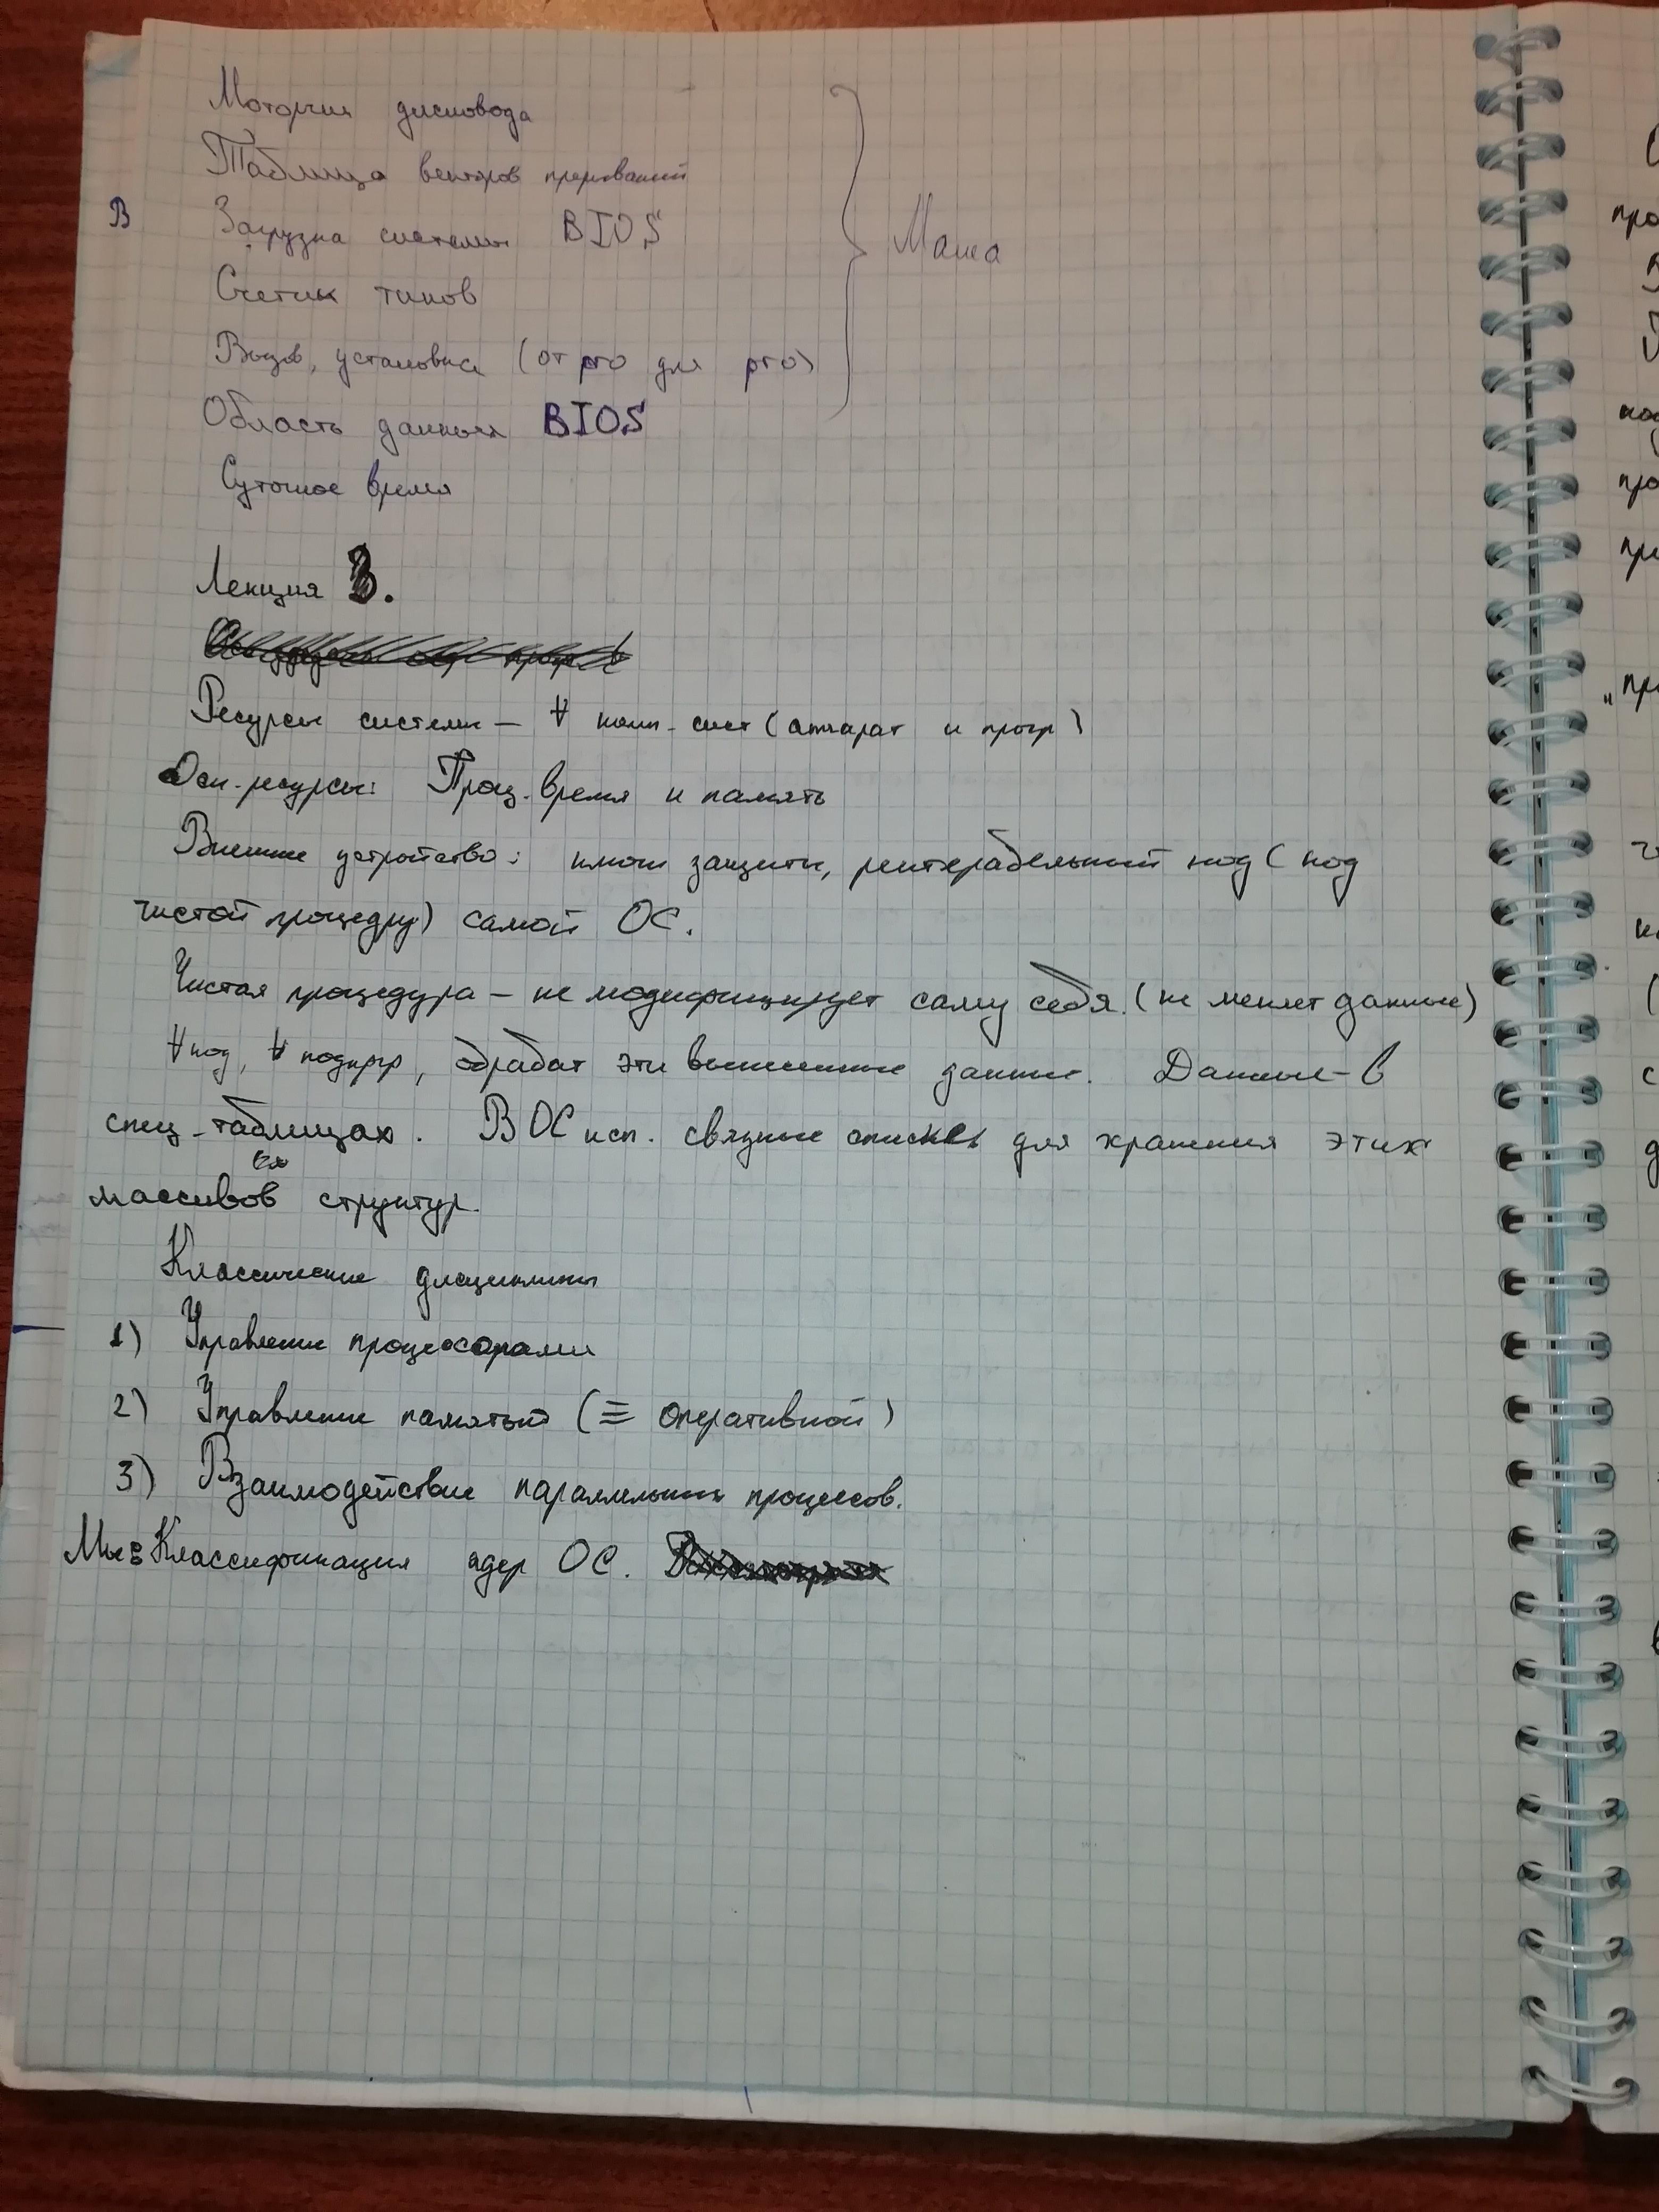 Моторчик дисковода
Таблица векторов прерываний
В Загрузка системы BIOS
Счетчик тиков
Вызов, установка (от рго для рго)
Маша
Область данных BIOS
Суточное время
Лекция 3.
Ресурсы системы – ∀ комп. сист (аппарат и прогр)
Осн. ресурсы: Проц. время и память
Внешние устройство: ключи защиты, реентерабельный код (код
чистой процедур) самой ОС.
Чистая процедура – не модифицирует саму себя. (не меняет данные)
∀ код, ∀ подпрогр, обрабат эти вынесенные данные. Данные – в
спец. таблицах. В ОС исп. связные списки для хранения этих
массивов структур.
Классические дисциплины
1) Управление процессорами
2) Управление памятью (≡ оперативной)
3) Взаимодействие параллельных процессов.
Мы: Классификация ядер ОС.